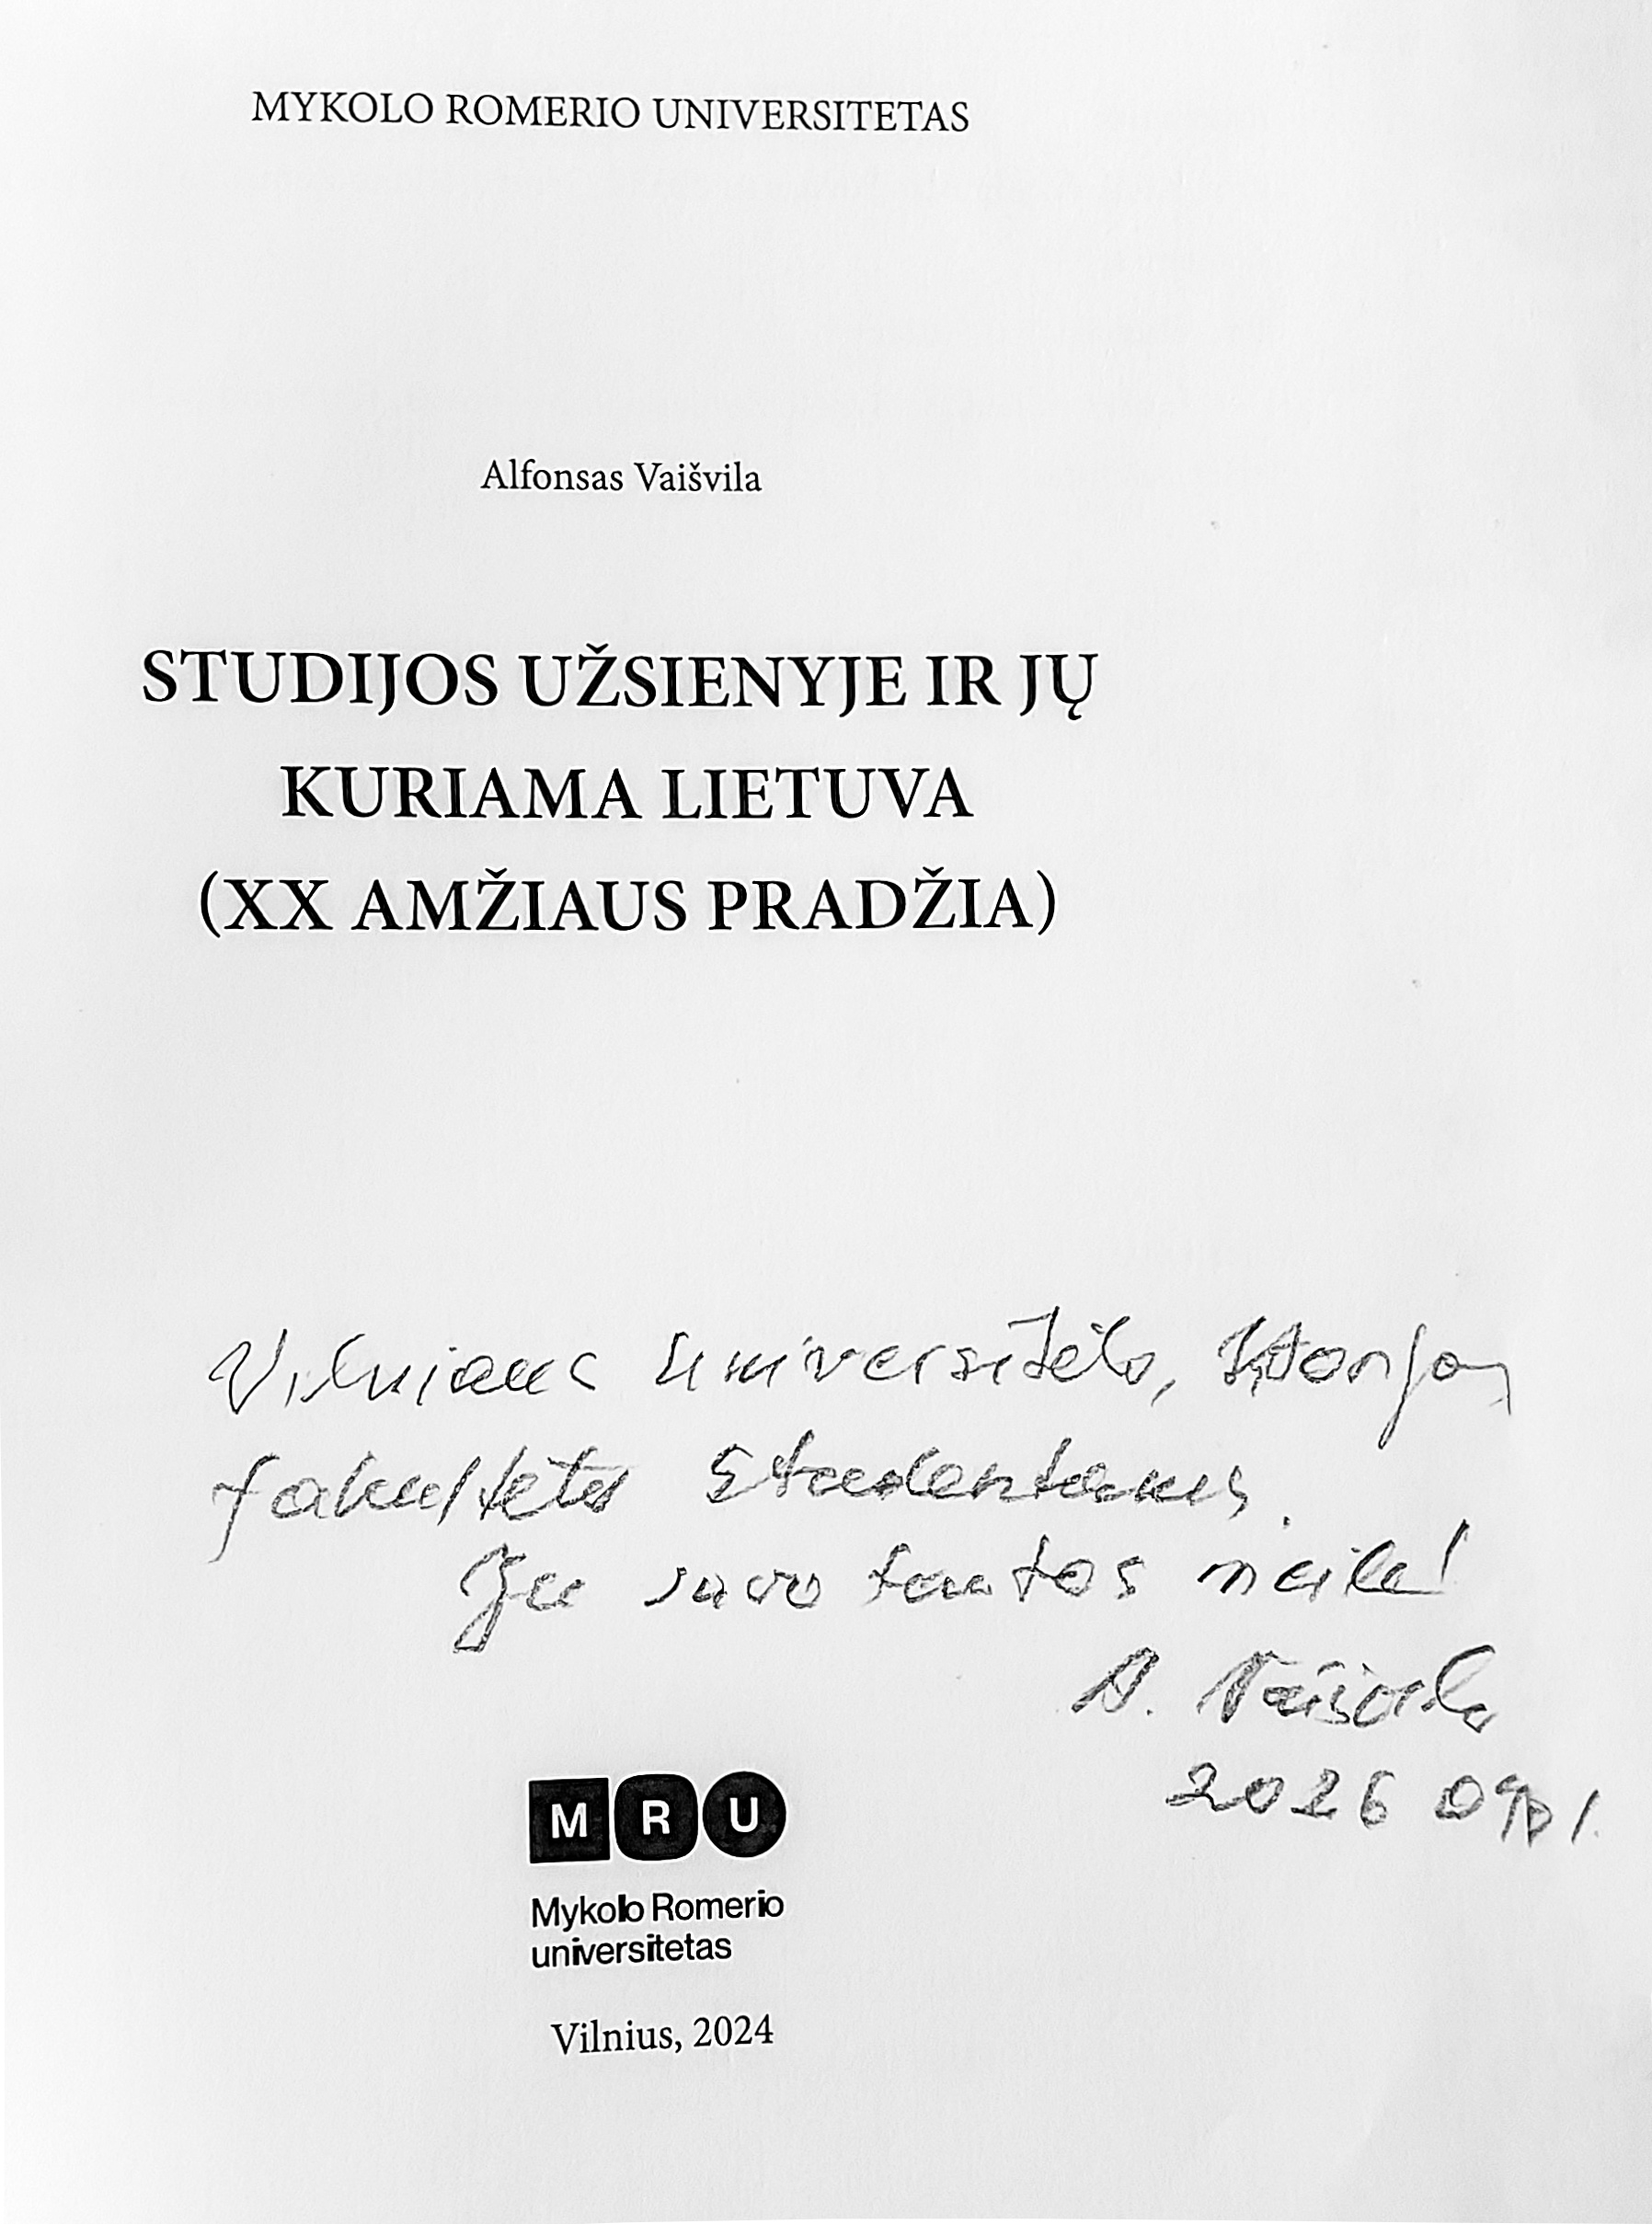 MYKOLO ROMERIO UNIVERSITETAS
Alfonsas Vaišvila
STUDIJOS UŽSIENYJE IR JŲ
KURIAMA LIETUVA
(XX AMŽIAUS PRADŽIA)
Vilniaus Universiteto, Istorijos
fakulteto studentams.
Su savo tautos meile!
A. Vaišvila
2026
M R U
Mykolo Romerio
universitetas
Vilnius, 2024